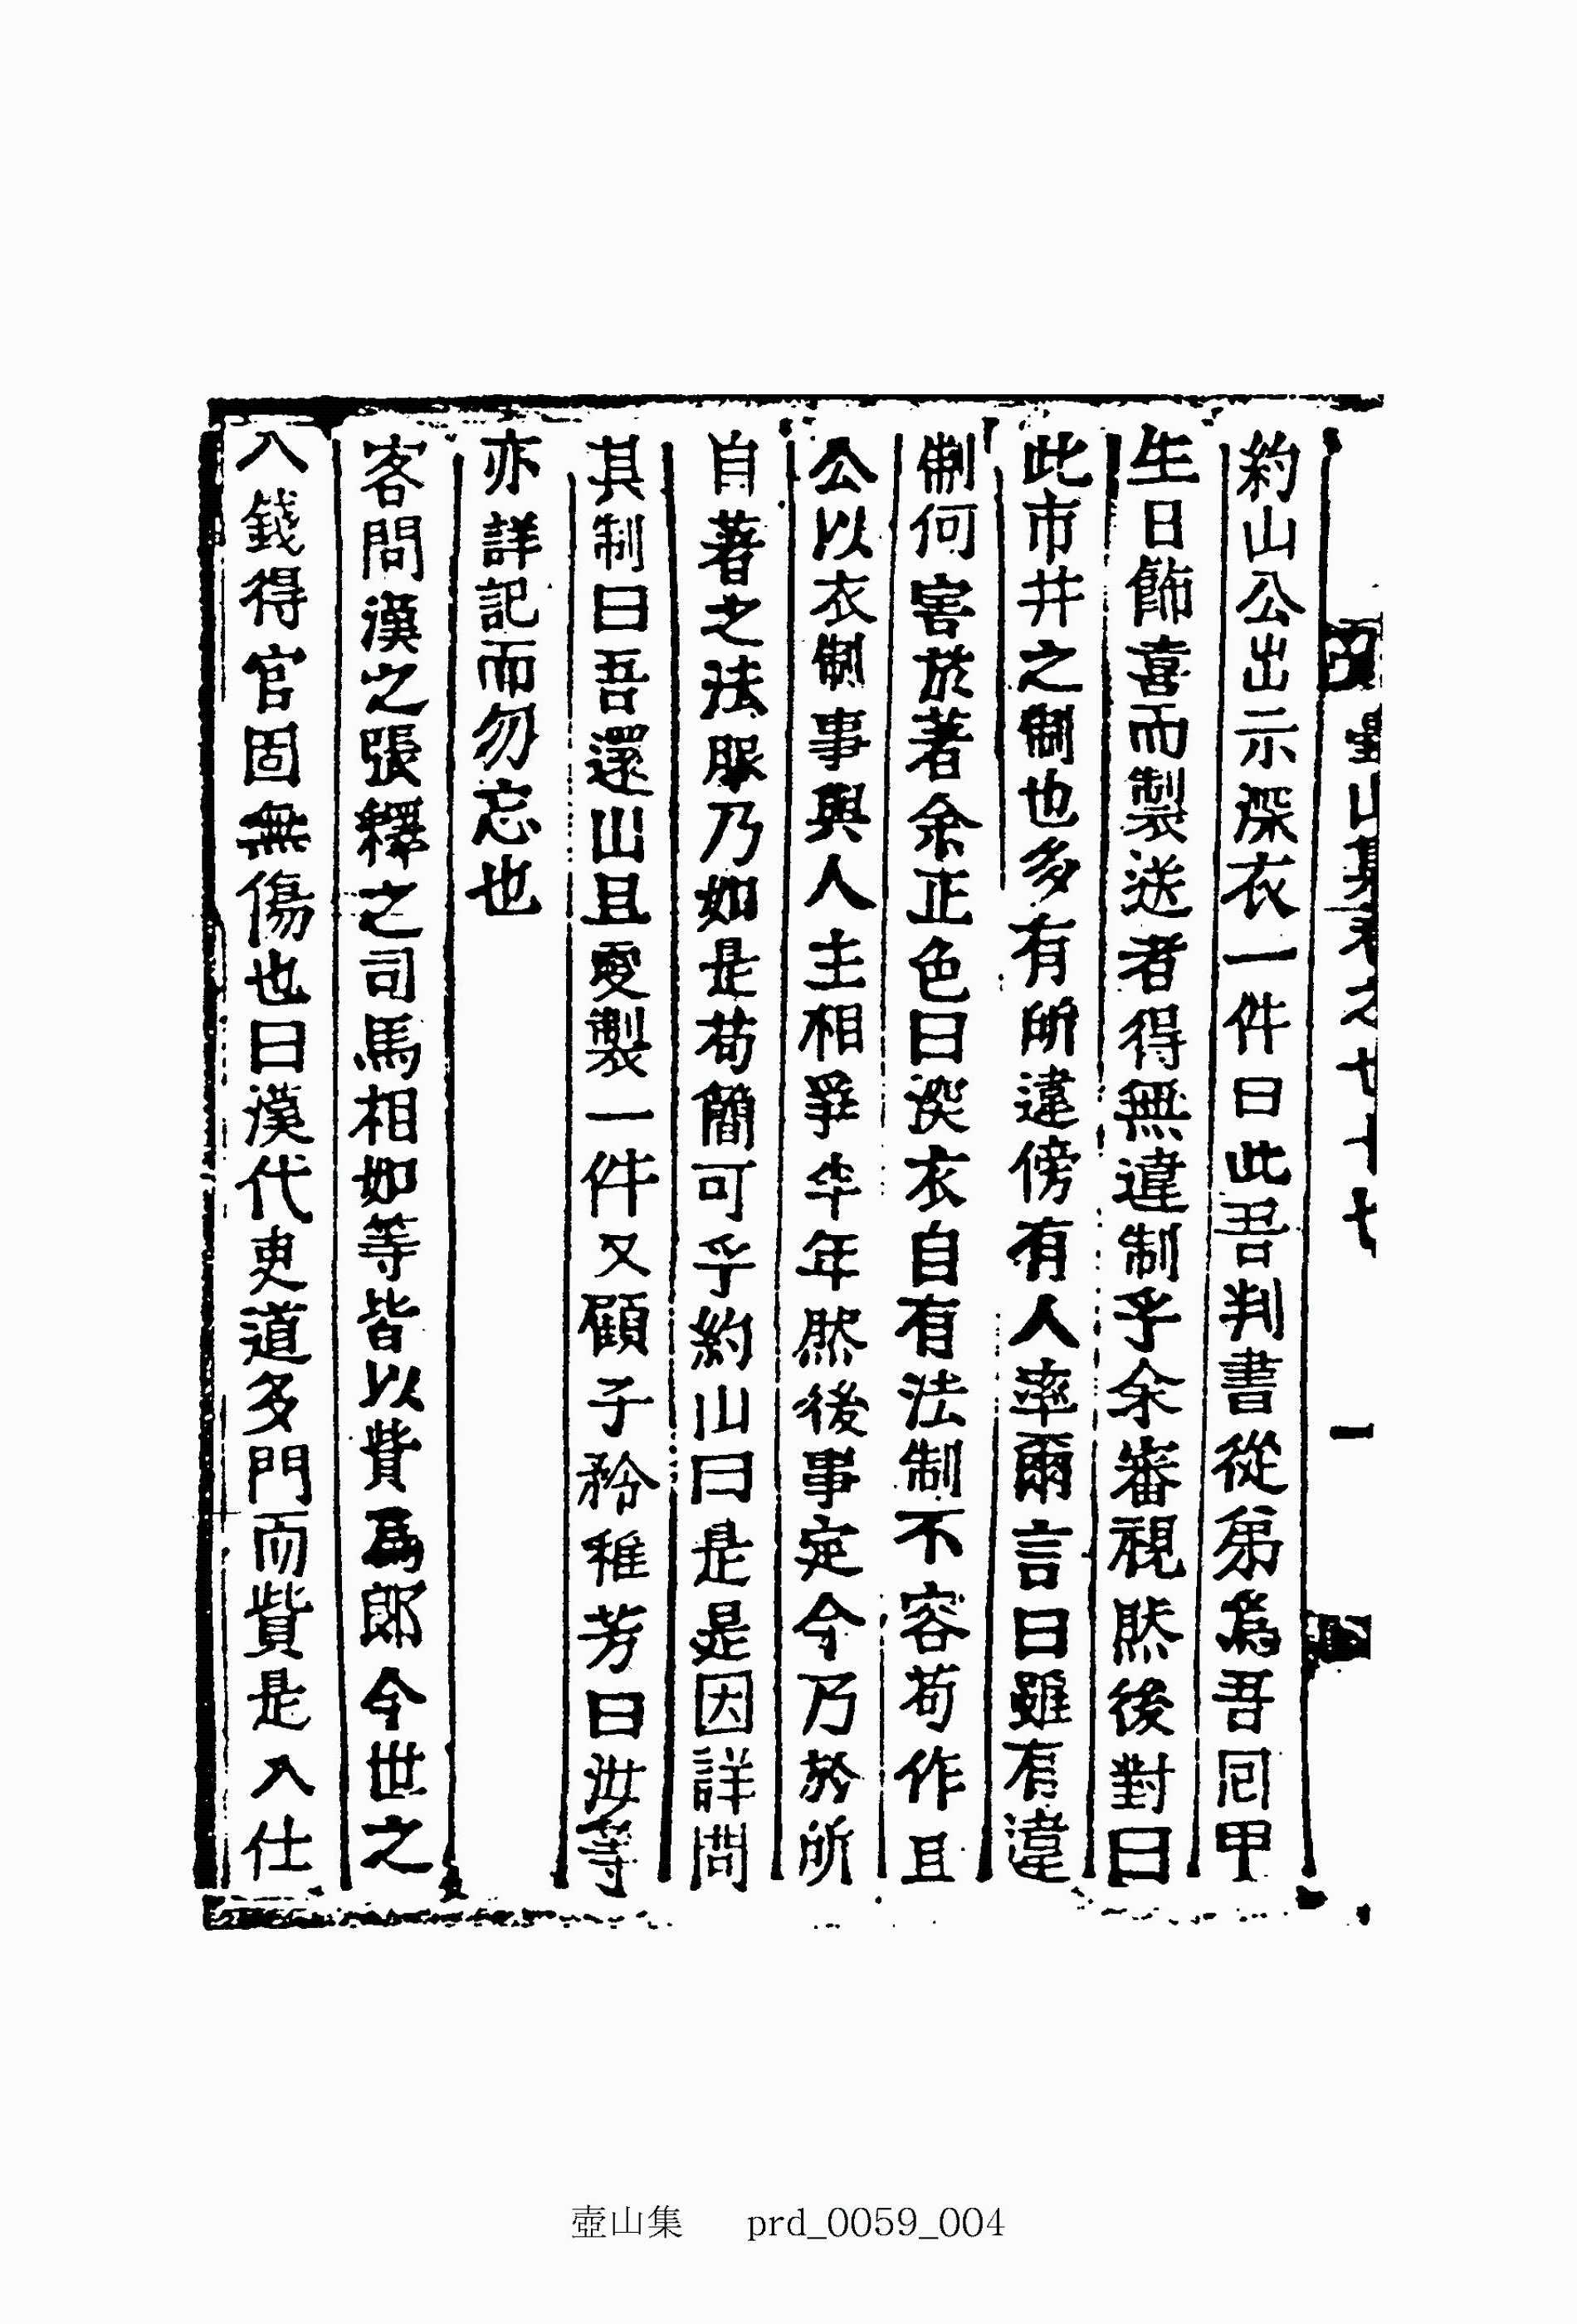 壺山集卷之七十七 一
約山公出示深衣一件曰此吾判書從弟爲吾同甲
生日飾喜而製送者得無違制乎余審視然後對曰
此市井之制也多有所違傍有人率爾言曰雖有違
制何害於著余正色曰深衣自有法制不容苟作且
公以衣制事與人主相爭半年然後事定今乃於所
自著之法服乃如是苟簡可乎約山曰是是因詳問
其制曰吾還山且更製一件又顧子矜稚芳曰汝等
亦詳記而勿忘也
客問漢之張釋之司馬相如等皆以貲爲郞今世之
入錢得官固無傷也曰漢代吏道多門而貲是入仕
壺山集 prd_0059_004